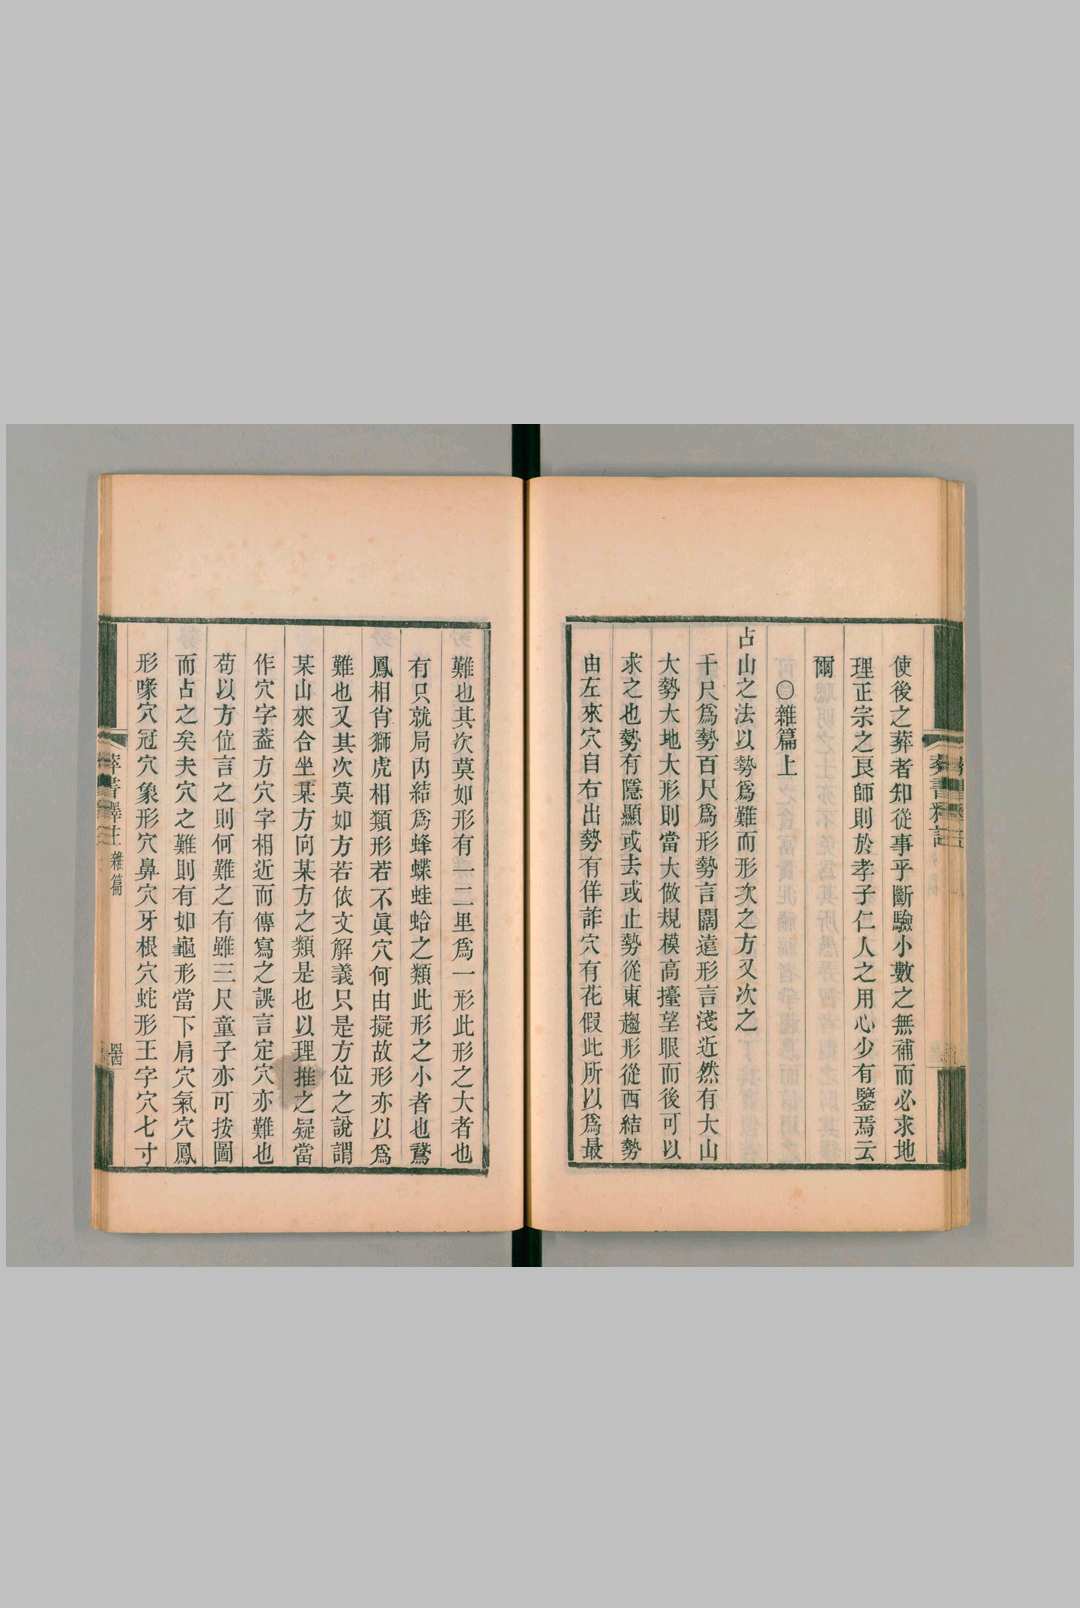 使後之葬者知從事乎斷驗小數之無補而必求地
理正宗之良師則於孝子仁人之用心少有鑒焉云
爾
〇雜篇上
占山之法以勢爲難而形次之方又次之
千尺爲勢百尺爲形勢言闊遠形言淺近然有大山
大勢大地大形則當大做規模高擡望眼而後可以
求之也勢有隱顯或去或止勢從東趨形從西結勢
由左來穴自右出勢有佯詐穴有花假此所以爲最
難也其次莫如形有一二里爲一形此形之大者也
有只就局內結爲蜂蝶蛙蛤之類此形之小者也鵞
鳳相肖獅虎相類形若不眞穴何由擬故形亦以爲
難也又其次莫如方若依文解義只是方位之說謂
某山來合坐某方向某方之類是也以理推之疑當
作穴字葢方穴字相近而傳寫之誤言定穴亦難也
苟以方位言之則何難之有雖三尺童子亦可按圖
而占之矣夫穴之難則有如龜形當下肩穴氣穴鳳
形喙穴冠穴象形穴鼻穴牙根穴蛇形王字穴七寸
葬書釋註
雜篇